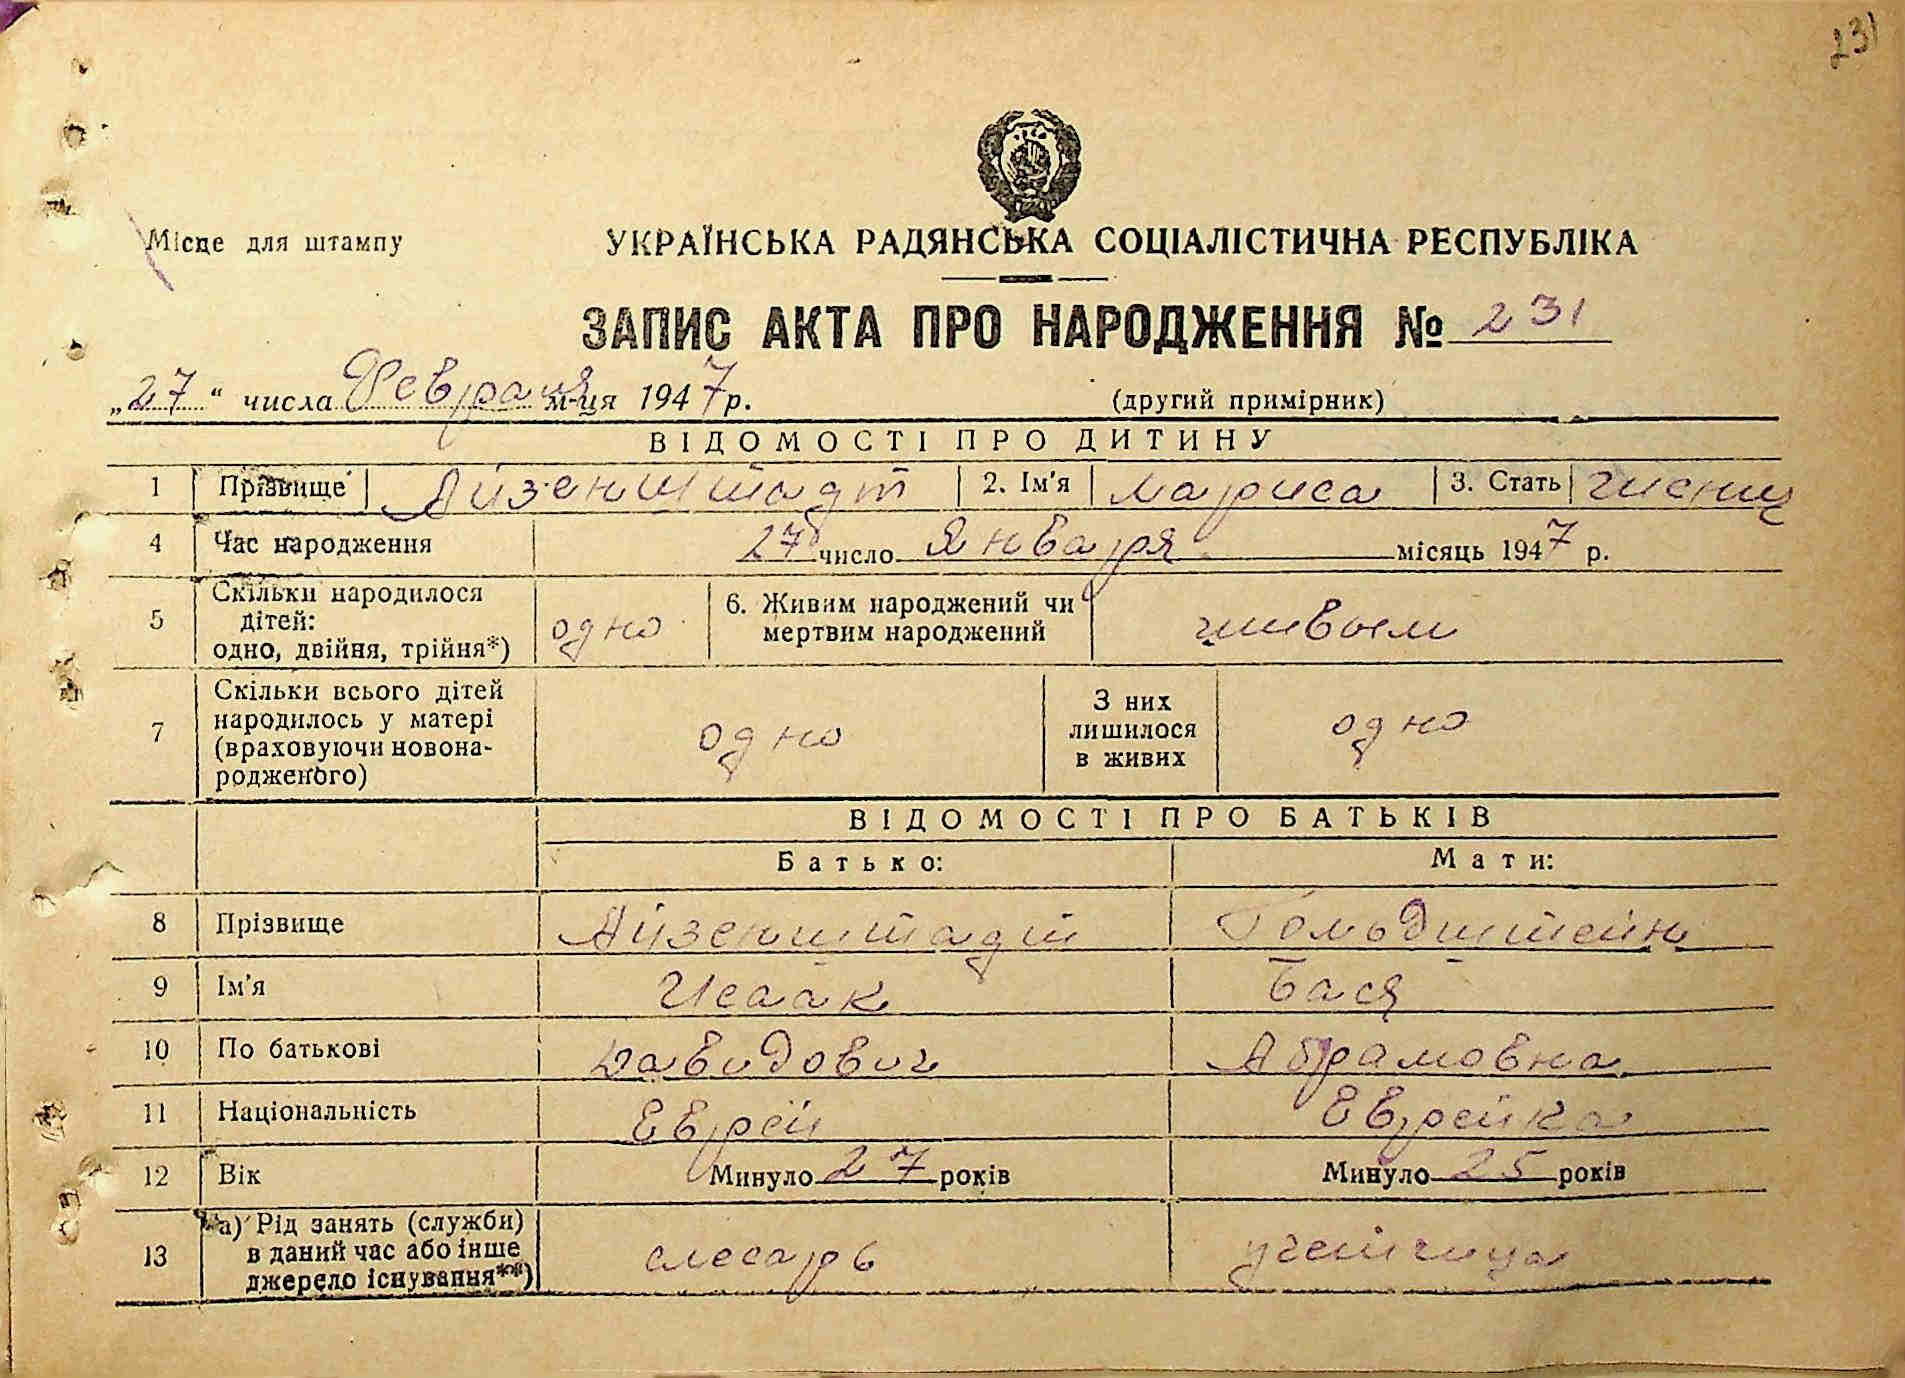 231
Місце для штампу
УКРАЇНСЬКА РАДЯНСЬКА СОЦІАЛІСТИЧНА РЕСПУБЛІКА
ЗАПИС АКТА ПРО НАРОДЖЕННЯ № 231
„27“ числа Февраля м-ця 1947 р. (другий примірник)
ВІДОМОСТІ ПРО ДИТИНУ
1 Прізвище Айзенштадт 2. Ім'я Лариса 3. Стать женщ
4 Час народження 27 число Января місяць 1947 р.
5 Скільки народилося дітей: одно, двійня, трійня*) одно 6. Живим народжений чи мертвим народжений живым
7 Скільки всього дітей народилось у матері (враховуючи новонародженого) одно З них лишилося в живих одно
ВІДОМОСТІ ПРО БАТЬКІВ
Батько: Мати:
8 Прізвище Айзенштадт Гольдштейн
9 Ім'я Исаак Бася
10 По батькові Давидович Абрамовна
11 Національність Еврей Еврейка
12 Вік Минуло 27 років Минуло 25 років
13 а) Рід занять (служби) в даний час або інше джерело існування**) слесарь